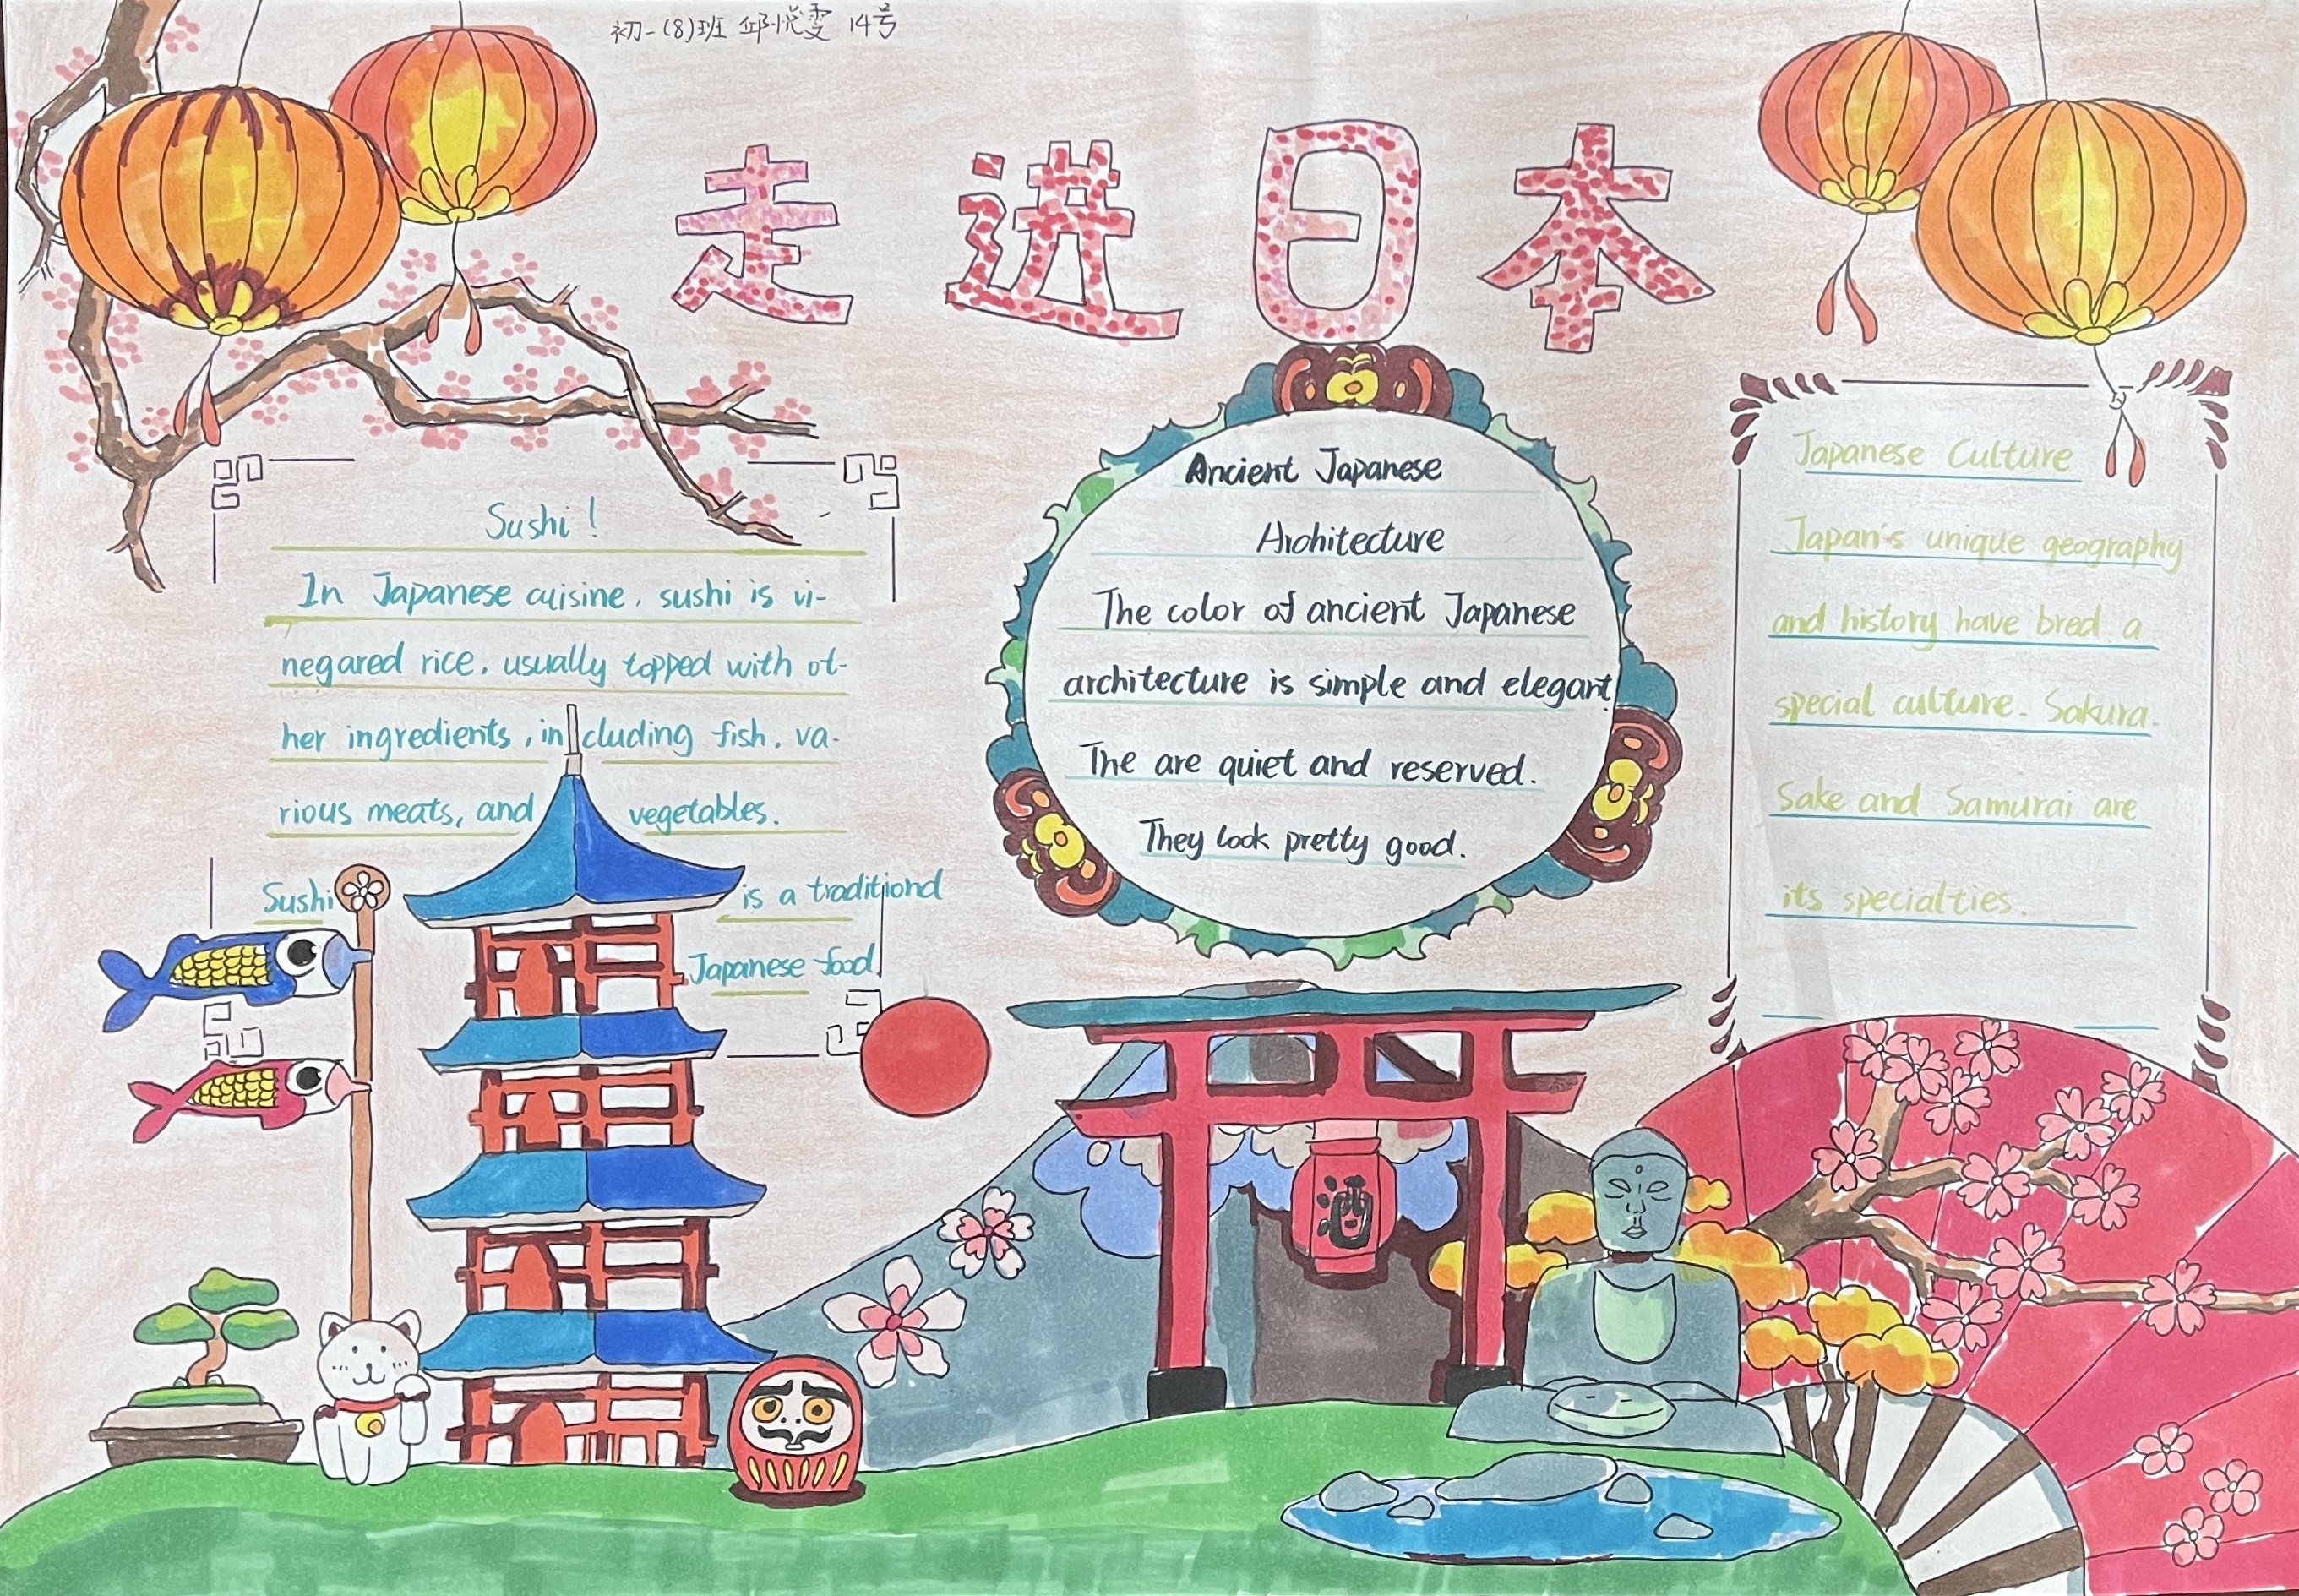 初一(8)班 邱悦雯 14号
走进日本
Sushi!
In Japanese cuisine, sushi is vi-
negared rice, usually topped with ot-
her ingredients, including fish, va-
rious meats, and vegetables.
Sushi is a traditional
Japanese food
Ancient Japanese
Architecture
The color of ancient Japanese
architecture is simple and elegant.
The are quiet and reserved.
They look pretty good.
Japanese Culture
Japan's unique geography
and history have bred a
special culture. Sakura.
Sake and Samurai are
its specialties.
酒